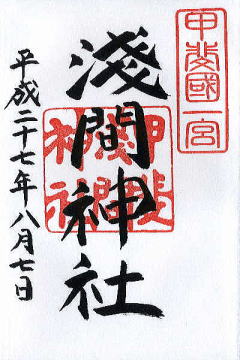 甲斐國一宮
淺間神社
平成二十七年八月七日